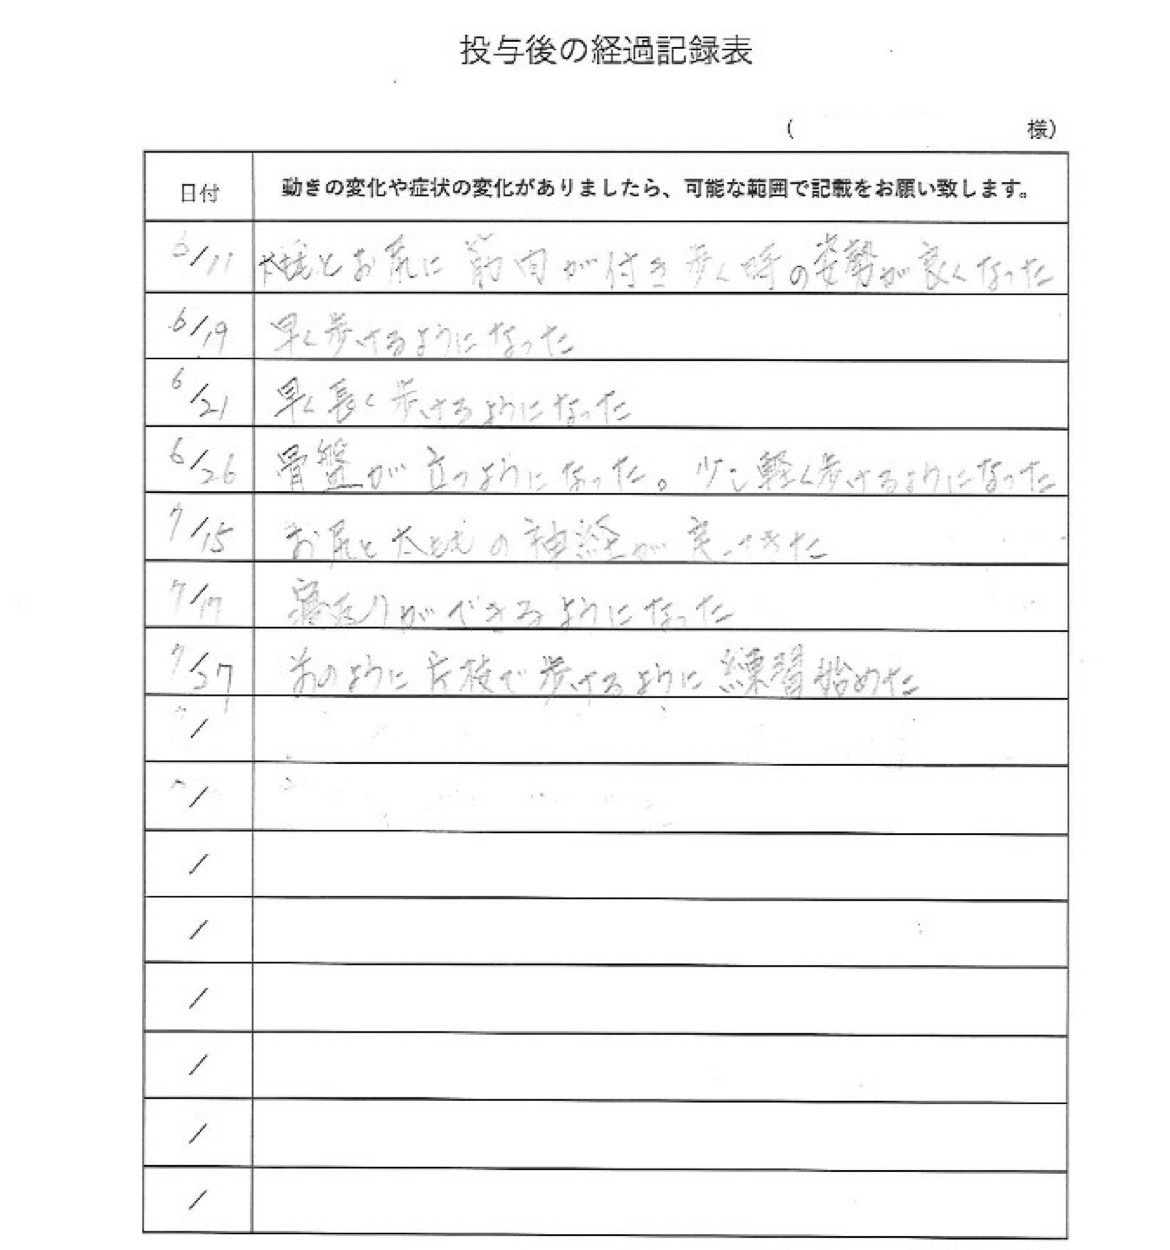 投与後の経過記録表
( 様)
日付 動きの変化や症状の変化がありましたら、可能な範囲で記載をお願い致します。
6/11 太ももとお尻に筋肉が付き歩く時の姿勢が良くなった
6/19 早く歩けるようになった
6/21 早く長く歩けるようになった
6/26 骨盤が立つようになった。少し軽く歩けるようになった
7/15 お尻と太ももの神経が戻ってきた
7/17 寝返りができるようになった
7/27 のように片杖で歩けるように練習始めた
/
/
/
/
/
/
/
/